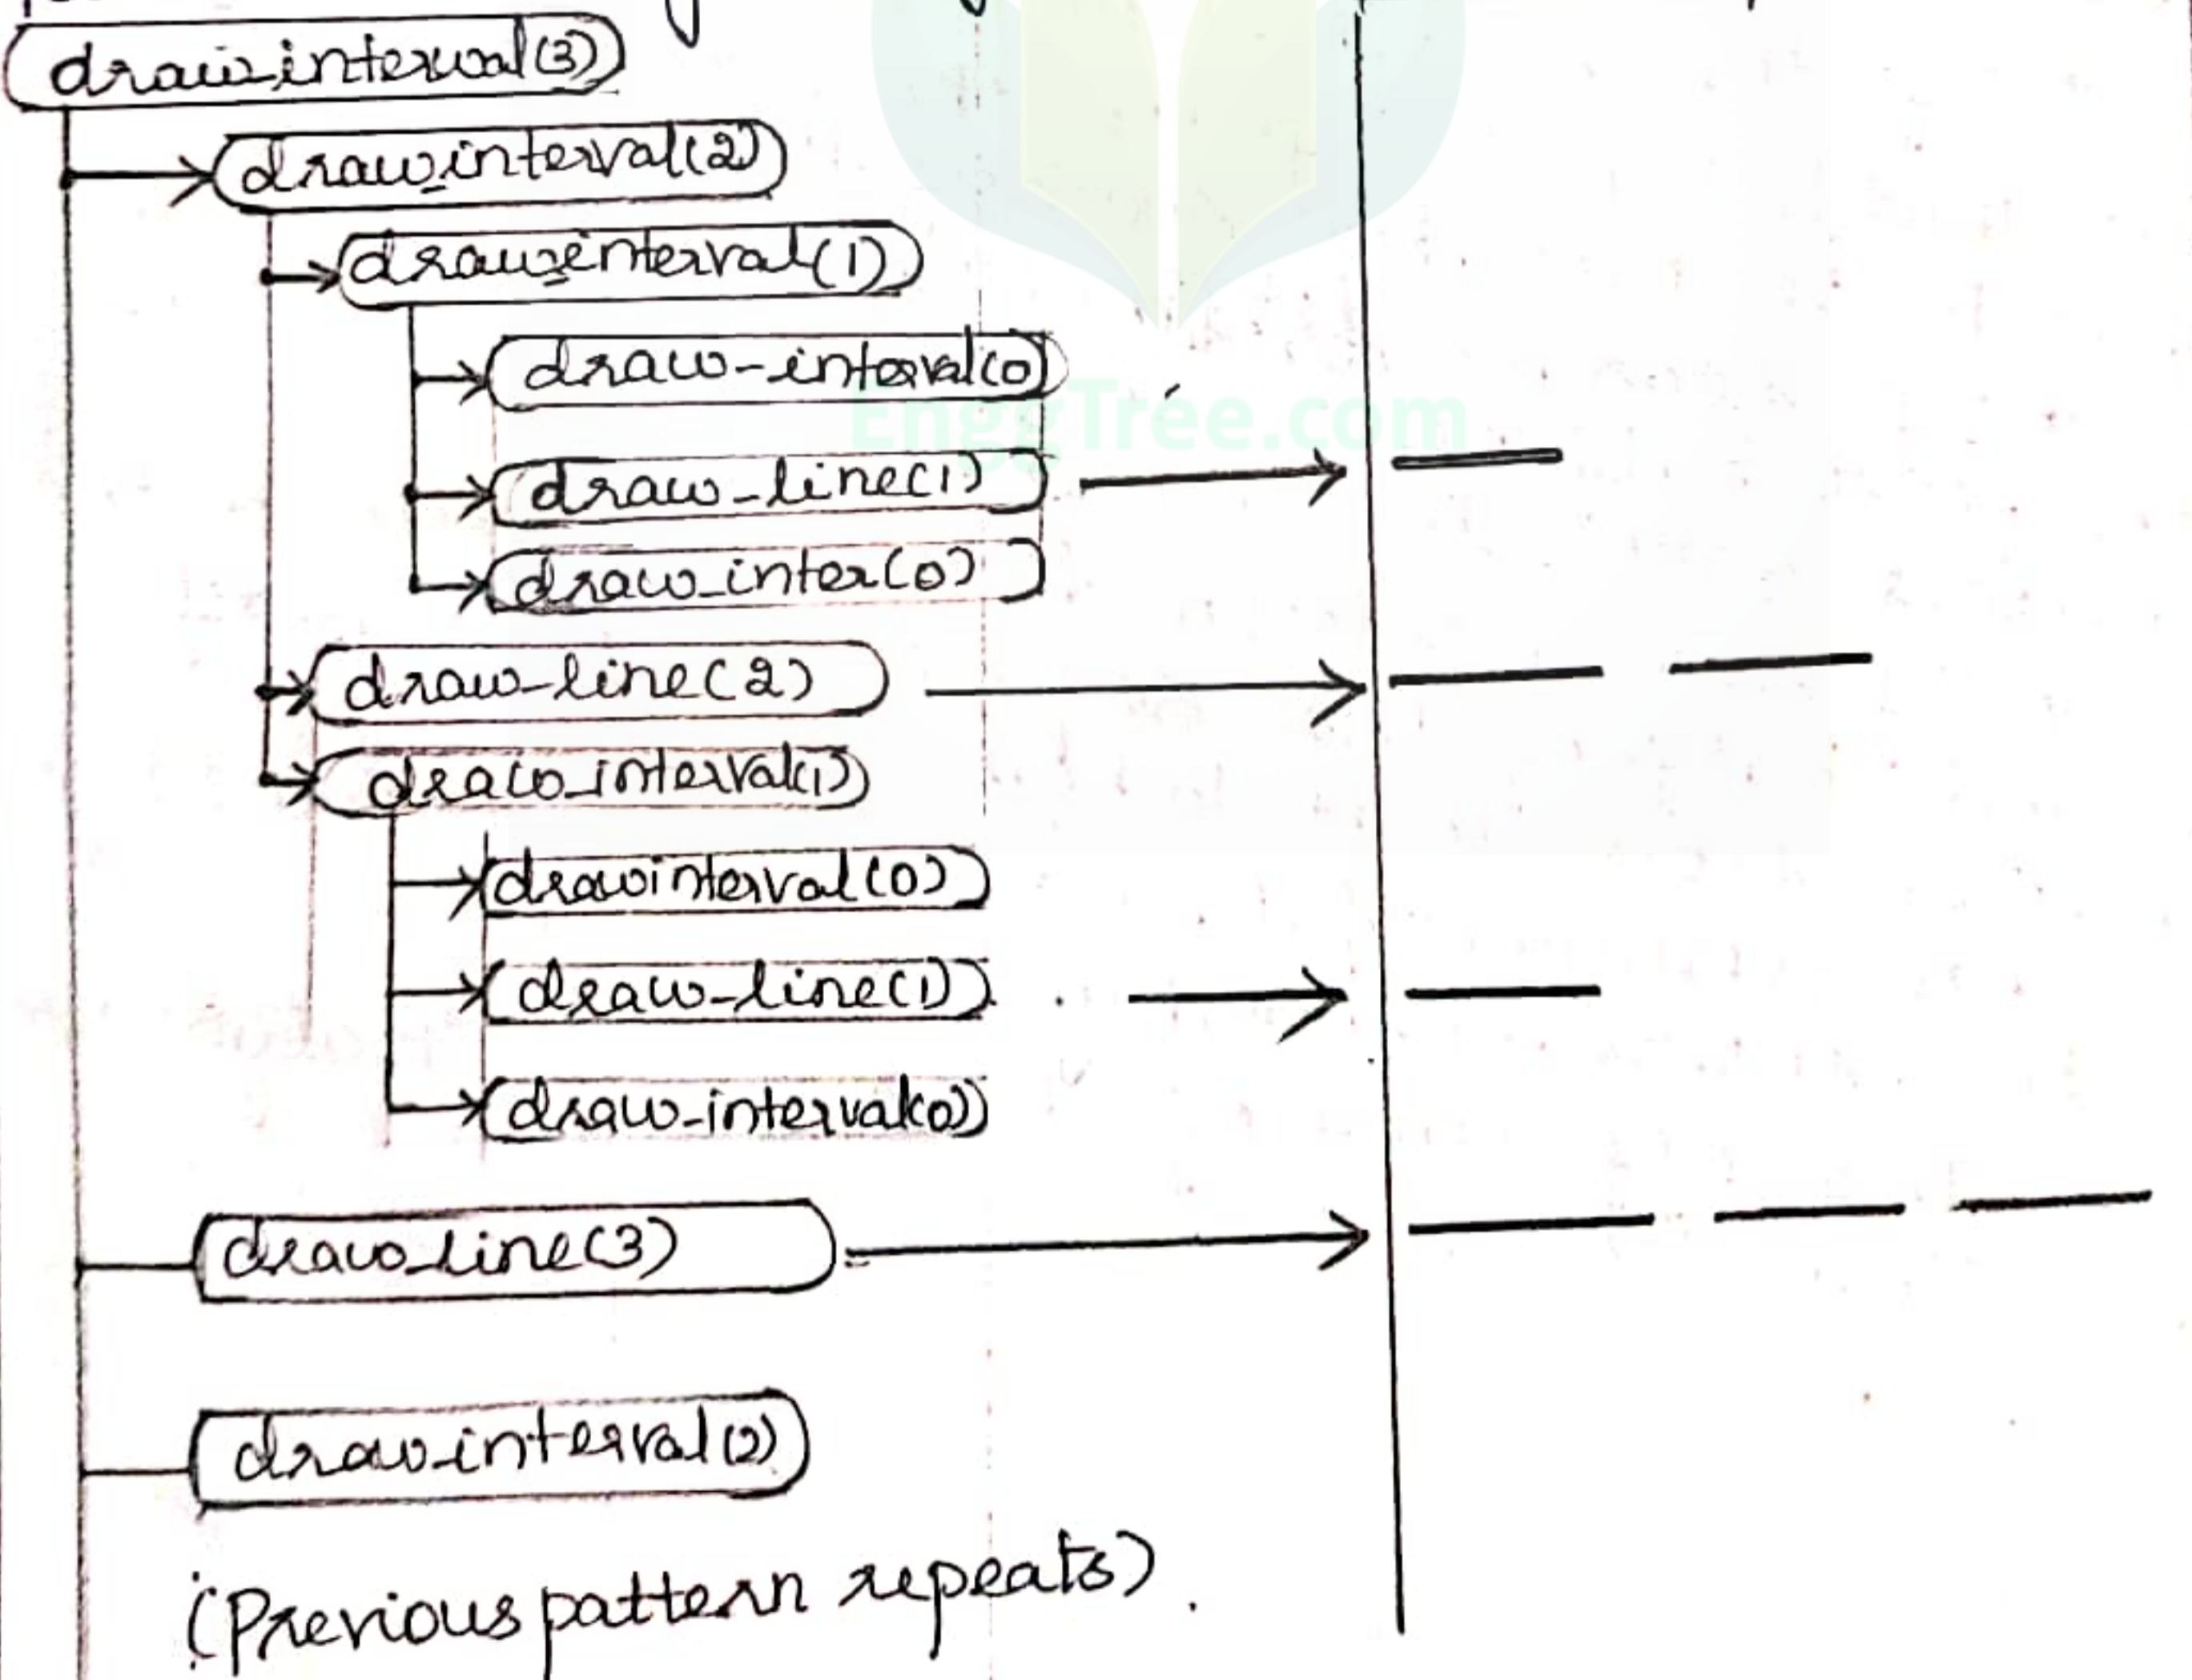 draw_interval(3)
draw_interval(2)
draw_interval(1)
draw-interval(0)
EnggTree.com
draw-line(1)
draw_inter(0)
draw-line(2)
draw_interval(1)
drawinterval(0)
draw-line(1)
draw-interval(0)
draw_line(3)
draw_interval(2)
(Previous pattern repeats).